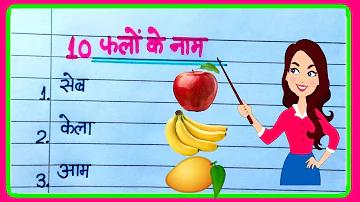 10 फलों के नाम
1. सेब
2. केला
3. आम